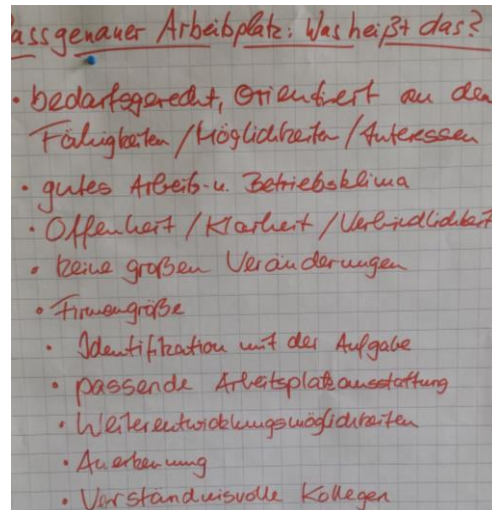 assgenauer Arbeitsplatz: Was heißt das?
• bedarfsgerecht, Orientiert an den
Fähigkeiten / Möglichkeiten / Interessen
• gutes Arbeits- u. Betriebsklima
• Offenheit / Klarheit / Verbindlichkeit
• keine großen Veränderungen
• Firmengröße
• Identifikation mit der Aufgabe
• passende Arbeitsplatzausstattung
• Weiterentwicklungsmöglichkeiten
• Anerkennung
• Verständnisvolle Kollegen